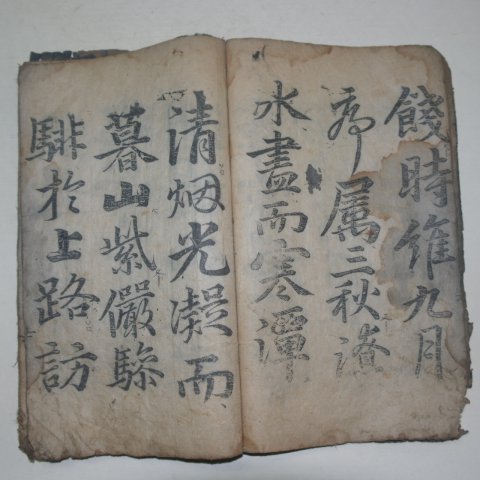 餞時維九月
序属三秋潦
水盡而寒潭
清烟光凝而
暮山紫儼驂
騑於上路訪